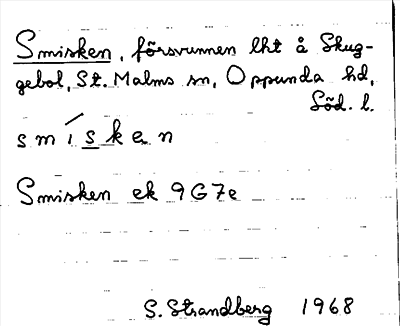 Smisken, försvunnen lht å Skug-
gebol, St. Malms sn, Oppunda hd,
Söd. l.
smísken
Smisken ek 9G7e
S. Strandberg 1968